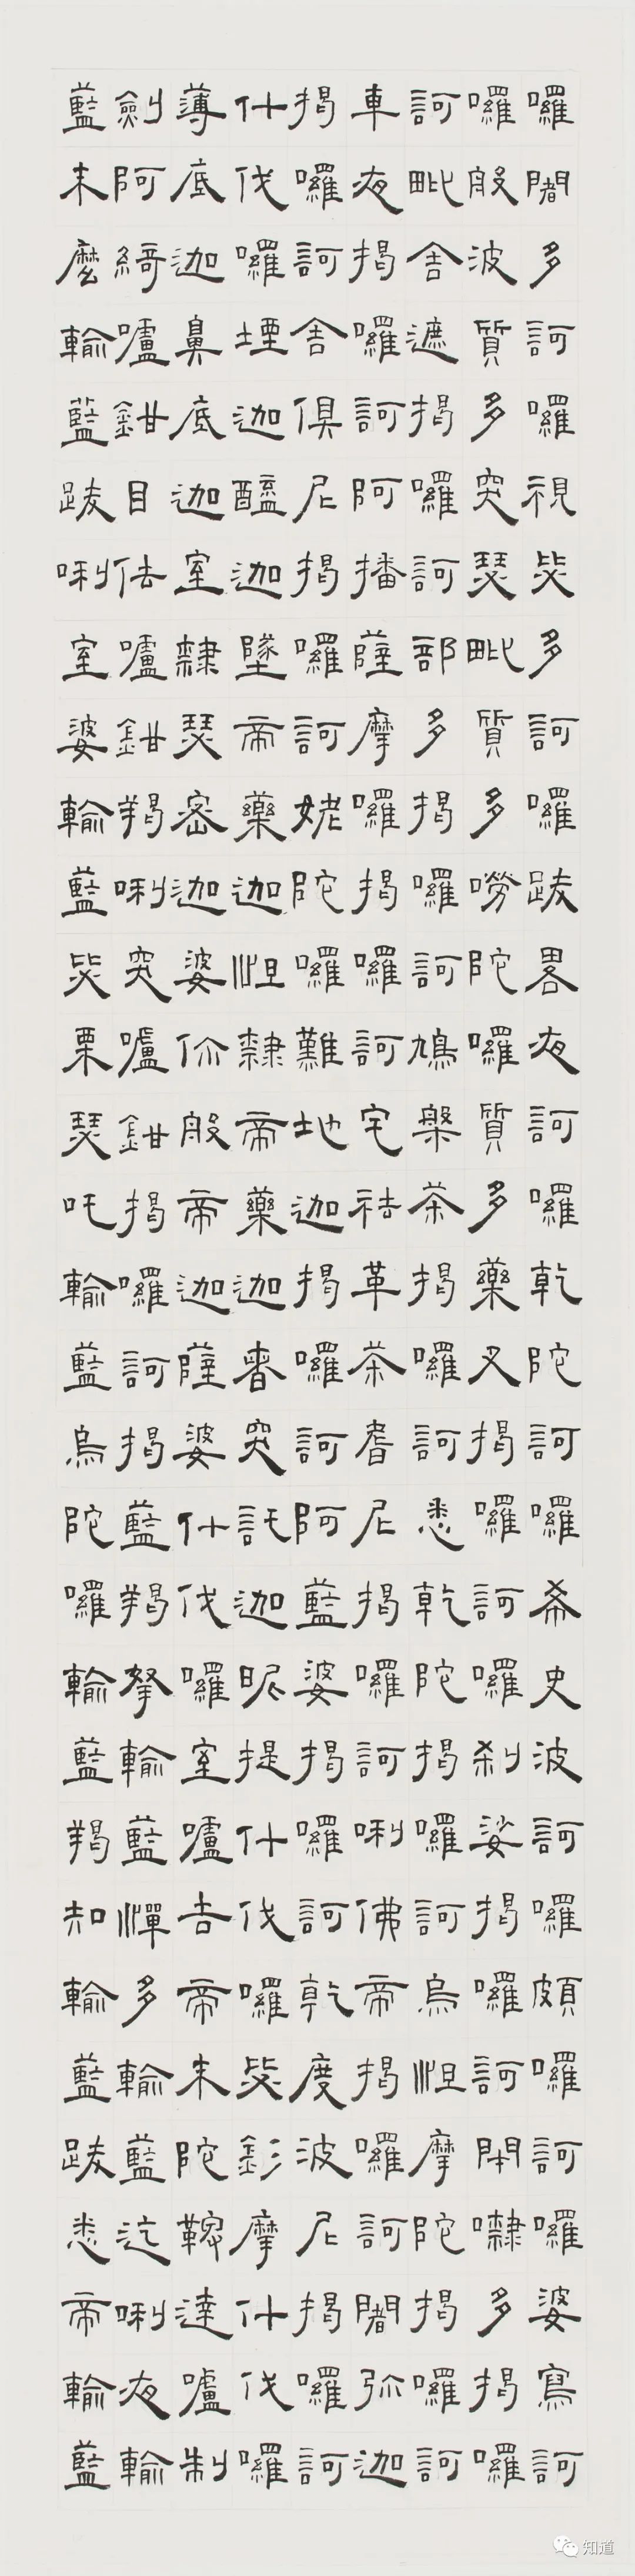 囉闍多訶囉視毖多訶囉跋畧夜訶囉乾陀訶囉希史波訶囉頗囉訶囉婆寫訶
囉般波質多突瑟毗質多嘮陀囉質多藥叉揭囉訶囉剎娑揭囉訶閉囇多揭囉
訶毗舍遮揭囉訶部多揭囉訶鳩槃茶揭囉訶悉乾陀揭囉訶烏怛摩陀揭囉訶
車夜揭囉訶阿播薩摩囉揭囉訶宅祛革茶耆尼揭囉訶唎佛帝揭囉訶闍弥迦
揭囉訶舍俱尼揭囉訶姥陀囉難地迦揭囉訶阿藍婆揭囉訶乾度波尼揭囉訶
什伐囉堙迦醯迦墜帝藥迦怛隸帝藥迦者突託迦昵提什伐囉毖釤摩什伐囉
薄底迦鼻底迦室隸瑟密迦婆你般帝迦薩婆什伐囉室嚧吉帝末陀鞞達嚧制
劍阿綺嚧鉗目佉嚧鉗羯唎突嚧鉗揭囉訶揭藍羯拏輸藍憚多輸藍迄唎夜輸
藍末麼輸藍跋唎室婆輸藍毖栗瑟吒輸藍烏陀囉輸藍羯知輸藍跋悉帝輸藍
知道